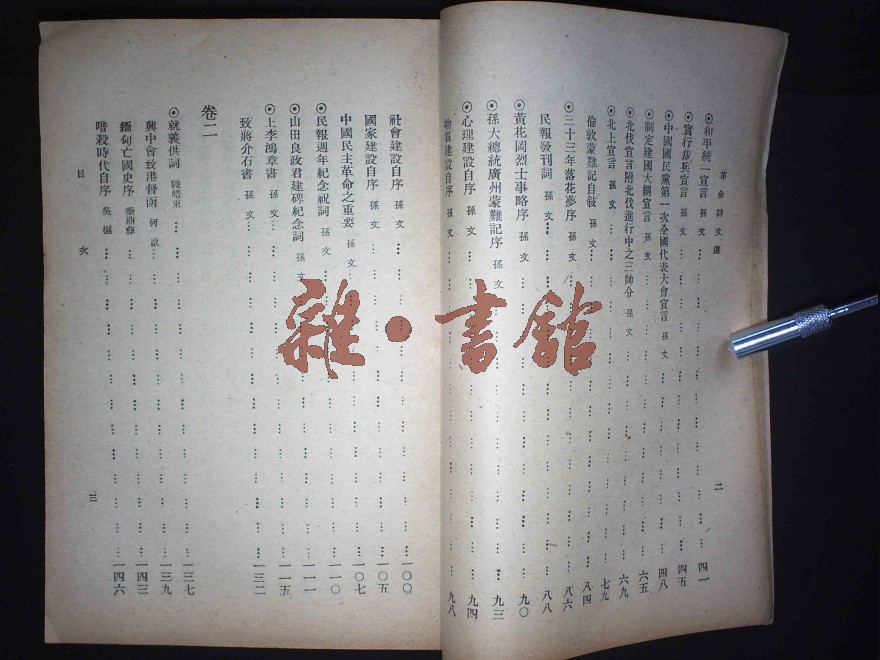 革命詩文選
二
◉和平統一宣言 孫文 四一
◉實行裁兵宣言 孫文 四五
◉中國國民黨第一次全國代表大會宣言 孫文 四八
◉制定建國大綱宣言 孫文 五五
◉北伐宣言附北伐進行中之三帥令 孫文 六九
◉北上宣言 孫文 七九
倫敦蒙難記自敘 孫文 八四
◉三十三年落花夢序 孫文 八六
民報發刊詞 孫文 八八
◉黃花岡烈士事略序 孫文 九〇
孫大總統廣州蒙難記序 孫文 九三
◉心理建設自序 孫文 九四
物質建設自序 孫文 九八
社會建設自序 孫文 一〇〇
國家建設自序 孫文 一〇五
中國民主革命之重要 孫文 一〇七
◉民報週年紀念祝詞 孫文 一一〇
◉山田良政君建碑紀念詞 孫文 一一一
◉上李鴻章書 孫文 一一五
致蔣介石書 孫文 一三二
卷二
◉就義供詞 陸皓東 一三七
興中會致港督函 何啟 一三九
緬甸亡國史序 秦力山 一四三
暗殺時代自序 吳樾 一四六
目次
三
雜·書館